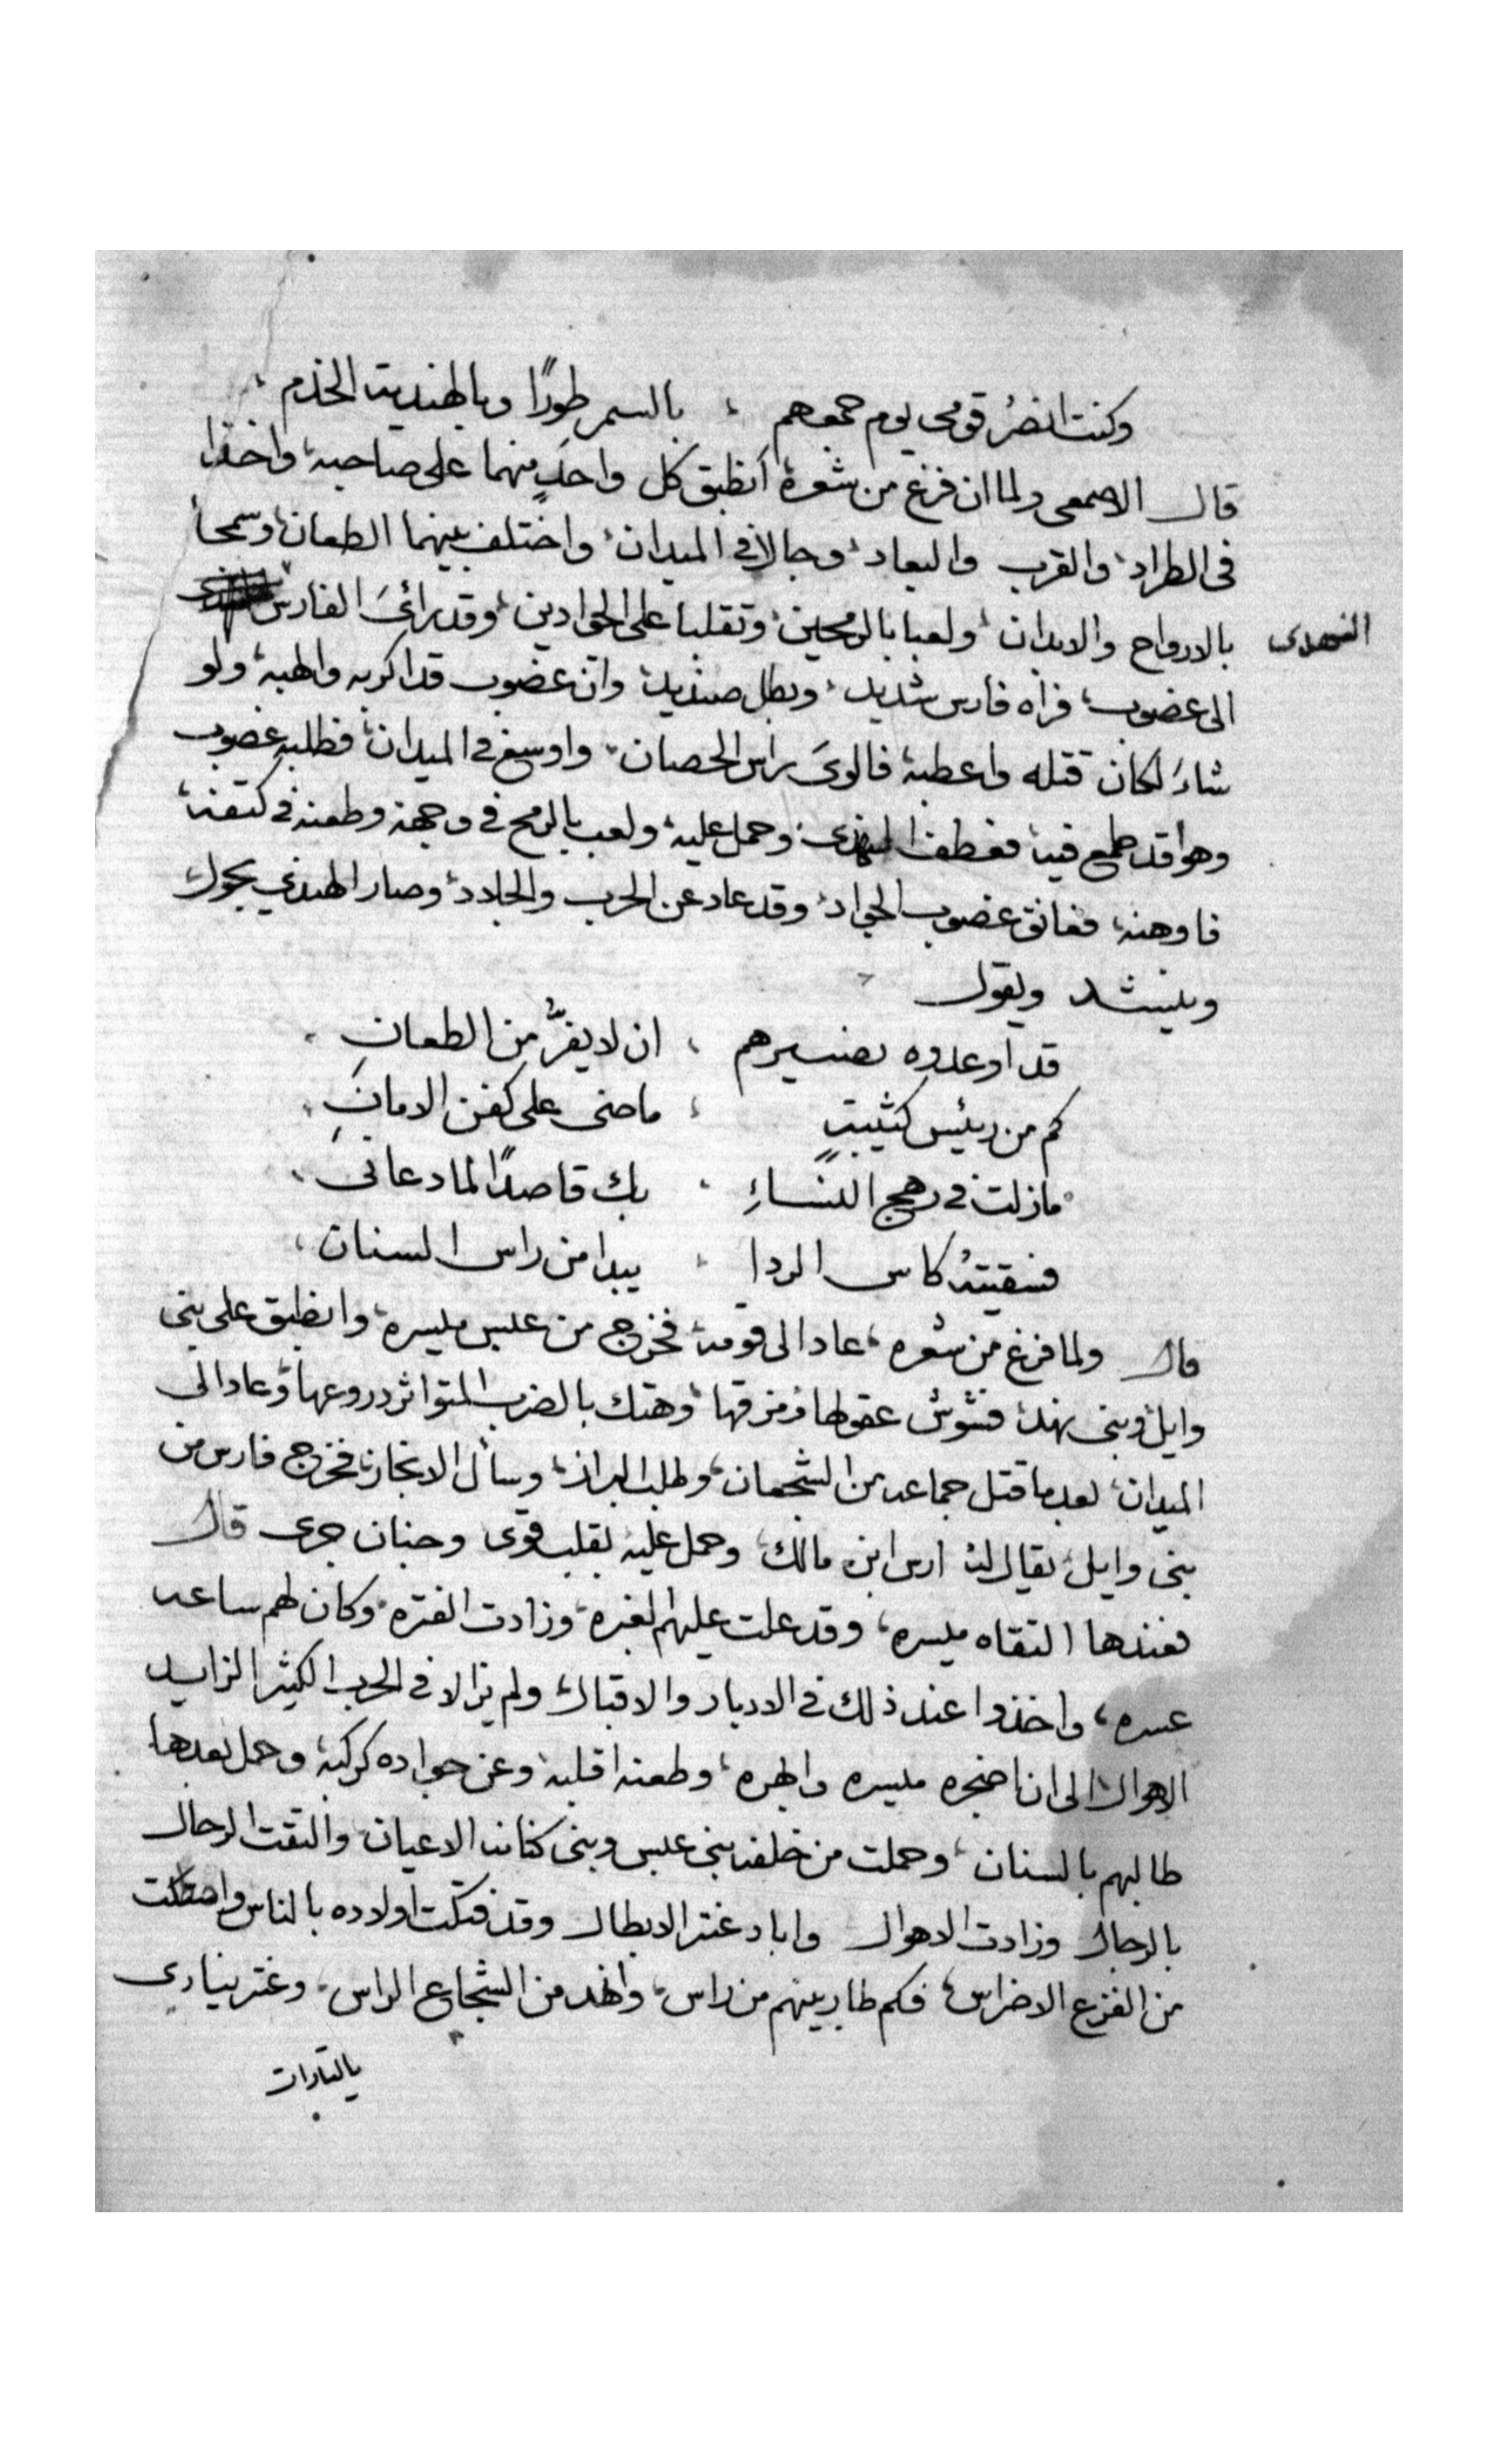 وكنت انصرُ قومى يوم جمعهم ، بالسمر طورًا وبالهندية الخذم ،
قال الاصمعى ولما ان فرغ من شعره انطبق كل واحدٍ منهما على صاحبه، واخذا
فى الطراد، والقرب والبعاد، وجالا فى الميدان، واختلف بينهما الطعان، وسمحا
بالارواح والابدان، ولعبا بالرمحين، وتقلبا على الجوادين، وقد رائ الفارس
النهدى
الى غضوب، فراه فارس شديد، وبطل صنديد، وان غضوب قد اكربه والهبه، ولو
شاءَ لكان قتله واعطبه، فالوى براس الحصان، واوسع فى الميدان، فطلبه غضوب
وهوا قد طمع فيه، فعطف النهدى، وحمل عليه، ولعب بالرمح فى وجهه وطعنه فى كتفه،
فاوهنه، فعانق غضوب الجواد، وقد عاد عن الحرب والجلاد، وصار الهندي يجول
وينشد ويقول
قد اوعدوه بضنيرهم ، ان لا يفرُّ من الطعانِ ،
كم من ريئس كثيبةٍ ، ماضى على كفن الامانِ ،
مازلت فى رهج النساءِ ، بك قاصدًا لما دعانى ،
فسقيتهُ كاس الردا ، يبدا من راس السنان ،
قال ولما فرغ من شعره، عاد الى قومه، فخرج من عبس ميسره، وانطبق على بنى
وايل وبنى نهد، فشوش عقولها ومزقها، وهتك بالضرب المتواتر دروعها، وعاد الى
الميدان، بعد ما قتل جماعه من الشجعان، وطلب البراز، وسأل الانجاز، فخرج فارس من
بنى وايل، يقال له ارس ابن مالك، وحمل عليه بقلب قوى وجنان جرى قال
فعندها التقاه ميسره، وقد علت عليهم الغبره، وزادت الفتره، وكان لهم ساعه
عسره، واخذوا عند ذلك فى الادبار والاقبال، ولم يزالا فى الحرب الكثير الزايد
الاهوال، الى ان اضجره ميسره وابهره، وطعنه اقلبه، وعن جواده كركبه، وحمل بعدها
طالبهم بالسنان، وحملت من خلفه بنى عبس وبنى كنانه الاعيان، والتقت الرجال
بالرجال وزادت الاهوال واباد عنتر الابطال وقد فتكت اولاده بالناس واصتكت
من الفزع الاضراس، فكم طار بينهم من راس، وانهد من الشجاع الراس، وعنتر ينادى
يالثارات